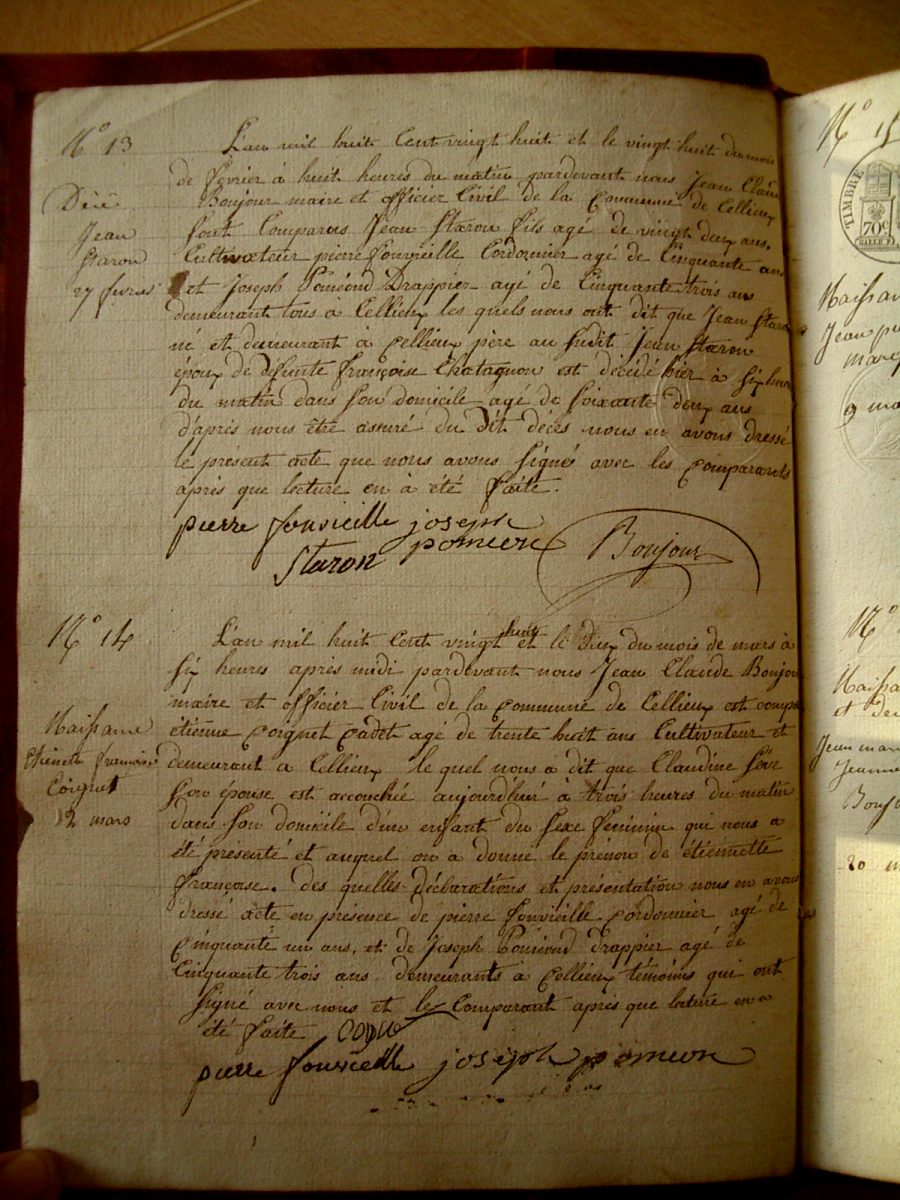 N° 13
L'an mil huit Cent vingt huit et le vingt huit du mois
de février à huit heures du matin pardevant nous Jean Claude
Bonjour maire et officier Civil de la Commune de Cellieux
Sont Comparus Jean Staron fils agé de vingt deux ans.
Cultivateur pierre fonvieille Cordonnier agé de Cinquante ans
et joseph Poméond Drappier agé de Cinquante trois ans
demeurant tous à Cellieux les quels nous ont dit que Jean Staron
né et demeurant à Cellieux père au Sudit Jean Staron
époux de défunte françoise Chatagnon est décidé hier à Six heures
du matin dans Son domicile agé de Soixante deux ans
d'après nous être assuré du Dit décès nous en avons dressé
le présent acte que nous avons Signés avec les Comparants
après que lecture en à été faite.
Jean
Staron
27 fevrier
pierre fonvieille joseph
Staron pomeon Bonjour
N° 14
L'an mil huit Cent vingt huit et le Dux du mois de mars à
Six heures après midi pardevant nous Jean Claude Bonjour
maire et officier Civil de la Commune de Cellieux est compa
étienne Coignet Cadet agé de trente huit ans Cultivateur et
demeurant a Cellieux le quel nous à dit que Claudine Séve
Son épouse est accouchée aujourd'hui à trois heures du matin
dans Son domicile d'un enfant du Sexe féminin qui nous a
été présenté et auquel on a donné le prénon de étiennette
françoise. des quelles déclarations et présentation nous en avons
dressé acte en présence de pierre fonvieille Cordonnier agé de
Cinquante un ans, et de Joseph Poméond Drappier agé de
Cinquante trois ans demeurants à Cellieux témoins qui ont
Signé avec nous et le Comparant après que lecture en a
été faite
Naissance
françoise
Coignet
12 mars
pierre fonvieille joseph pomeon
N° 15
TIMBRE
70c
Jean
N°
Jean
Jeanne
20 m